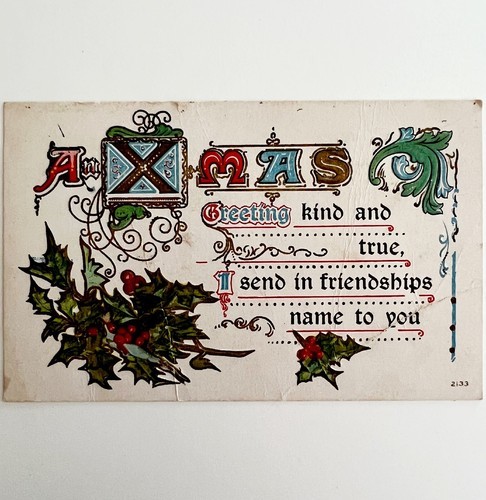 An XMAS
Greeting kind and
true,
I send in friendships
name to you
2133